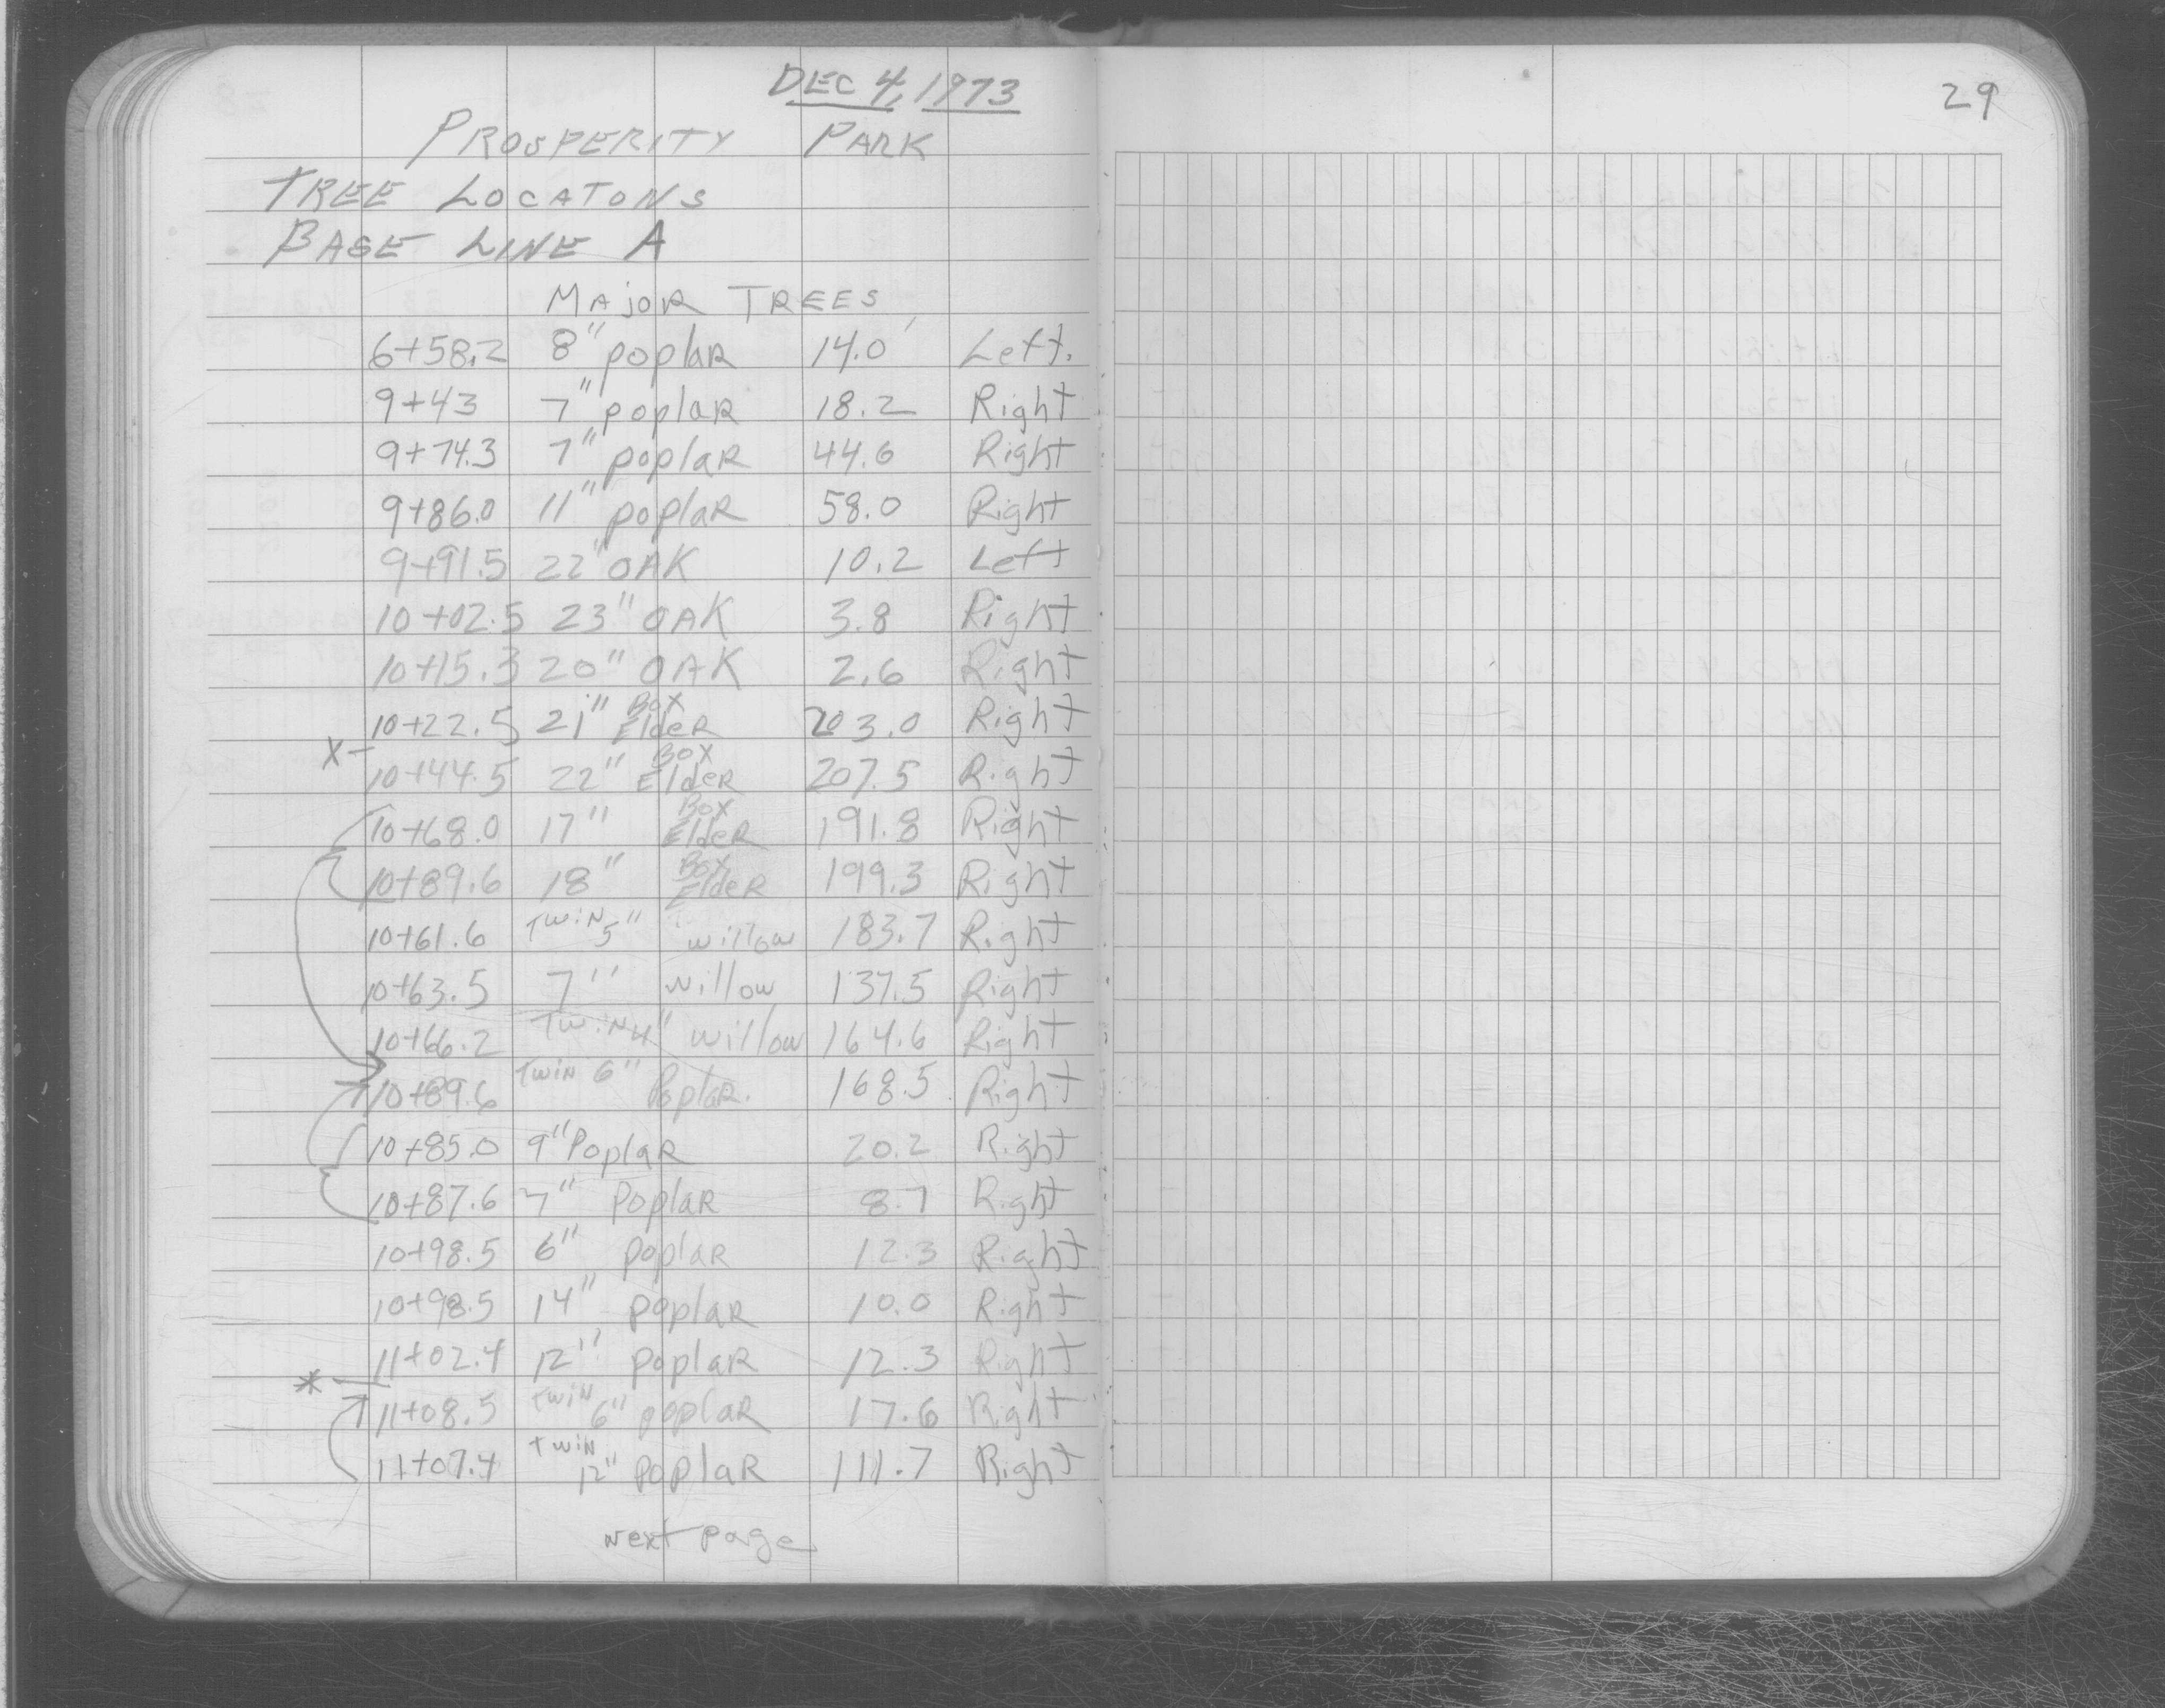 DEC 4, 1973
29
PROSPERITY PARK
TREE LOCATONS
BASE LINE A
MAjOR TREES
6+58.2 8" poplaR 14.0' Left.
9+43 7" poplaR 18.2 Right
9+74.3 7" poplaR 44.6 Right
9+86.0 11" poplaR 58.0 Right
9+91.5 22" OAK 10.2 Left
10+02.5 23" OAK 3.8 Right
10+15.3 20" OAK 2.6 Right
10+22.5 21" Box EldeR 203.0 Right
X- 10+44.5 22" Box EldeR 207.5 Right
10+68.0 17" Box EldeR 191.8 Right
10+89.6 18" Box EldeR 199.3 Right
10+61.6 TwiN 5" willow 183.7 Right
10+63.5 7" willow 137.5 Right
10+66.2 TwiN 4" willow 164.6 Right
10+89.6 Twin 6" PoplaR. 168.5 Right
10+85.0 9" PoplaR 20.2 Right
10+87.6 7" PoplaR 8.7 Right
10+98.5 6" poplaR 12.3 Right
10+98.5 14" poplaR 10.0 Right
11+02.4 12" poplaR 12.3 Right
* 11+08.5 TwiN 6" poplaR 17.6 Right
11+07.4 twiN 12" poplaR 111.7 Right
Next page